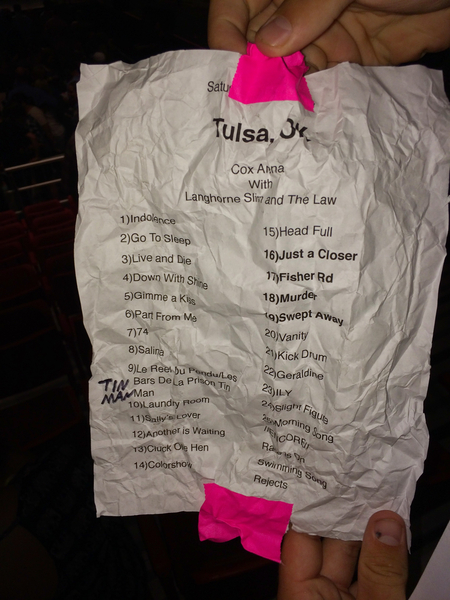 Satu
Tulsa, OK
Cox Arena
With
Langhorne Slim and The Law
1)Indolence
2)Go To Sleep
3)Live and Die
4)Down With Shine
5)Gimme a Kiss
6)Part From Me
7)74
8)Salina
9)Le Reel du Pendu/Les
Bars De La Prison Tin
Man
TIN
MAN
10)Laundry Room
11)Sally's Lover
12)Another is Waiting
13)Cluck Ole Hen
14)Colorshow
15)Head Full
16)Just a Closer
17)Fisher Rd
18)Murder
19)Swept Away
20)Vanity
21)Kick Drum
22)Geraldine
23)ILY
24)Slight Figure
25)Morning Song
Swimming Song
Rejects